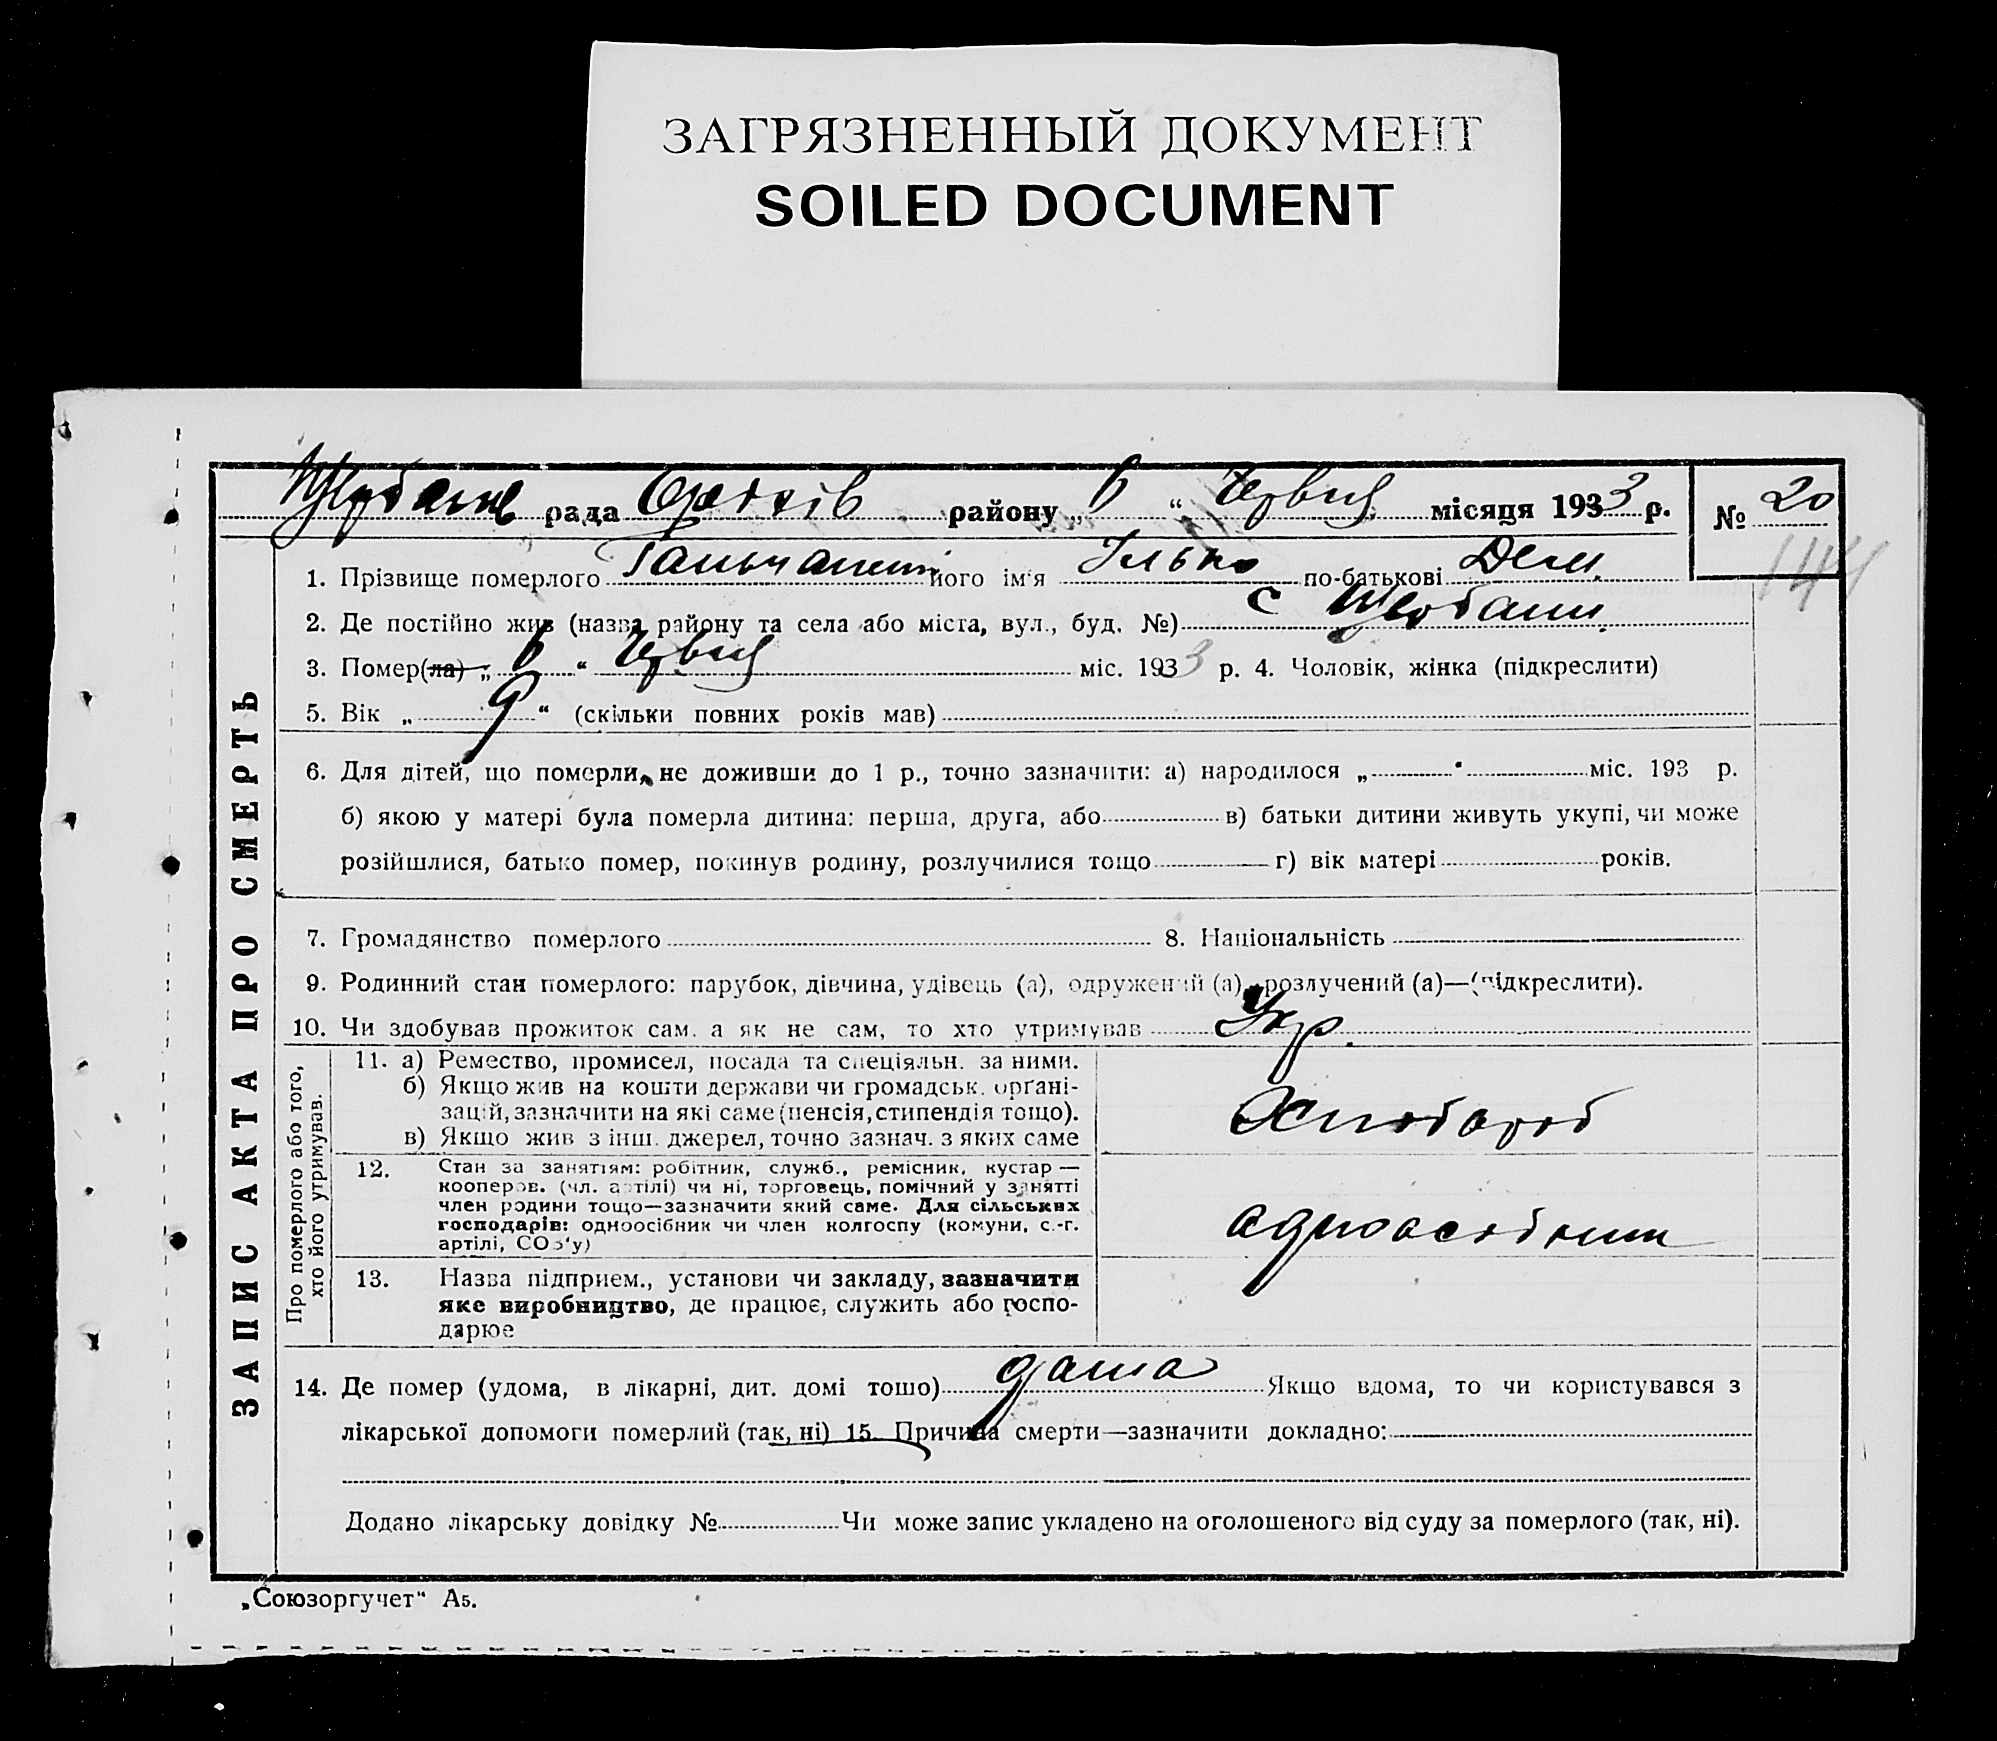 ЗАГРЯЗНЕННЫЙ ДОКУМЕНТ
SOILED DOCUMENT
рада району „ 6 “ Червня місяця 1933 р. № 20
144
ЗАПИС АКТА ПРО СМЕРТЬ
1. Прізвище померлого його ім'я Ілько по-батькові Дем.
2. Де постійно жив (назва району та села або міста, вул., буд. №) с Щербани.
3. Помер(ла) „ 6 “ Червня міс. 1933 р. 4. Чоловік, жінка (підкреслити)
5. Вік „ 9 “ (скільки повних років мав)
6. Для дітей, що померли, не доживши до 1 р., точно зазначити: а) народилося „ “ міс. 193 р.
б) якою у матері була померла дитина: перша, друга, або в) батьки дитини живуть укупі, чи може
розійшлися, батько помер, покинув родину, розлучилися тощо г) вік матері років.
7. Громадянство померлого 8. Національність
9. Родинний стан померлого: парубок, дівчина, удівець (а), одружений (а), розлучений (а)—(підкреслити).
10. Чи здобував прожиток сам, а як не сам, то хто утримував Укр.
Про померлого або того,
хто його утримував.
11. а) Ремество, промисел, посада та спеціяльн. за ними.
б) Якщо жив на кошти держави чи громадськ. орґані-
зацій, зазначити на які саме (пенсія, стипендія тощо).
в) Якщо жив з інш. джерел, точно зазнач. з яких саме
Хлібороб
12. Стан за занятіям: робітник, служб., ремісник, кустар —
кооперов. (чл. артілі) чи ні, торговець, помічний у занятті
член родини тощо—зазначити який саме. Для сільських
господарів: одноосібник чи член колгоспу (комуни, с.-г.
артілі, СОЗ'у)
одноосібник
13. Назва підприєм., установи чи закладу, зазначити
яке виробництво, де працює, служить або госпо-
дарює
14. Де помер (удома, в лікарні, дит. домі тощо) дома Якщо вдома, то чи користувався з
лікарської допомоги померлий (так, ні) 15. Причина смерти—зазначити докладно:
Додано лікарську довідку № Чи може запис укладено на оголошеного від суду за померлого (так, ні).
„Союзоргучет“ А5.